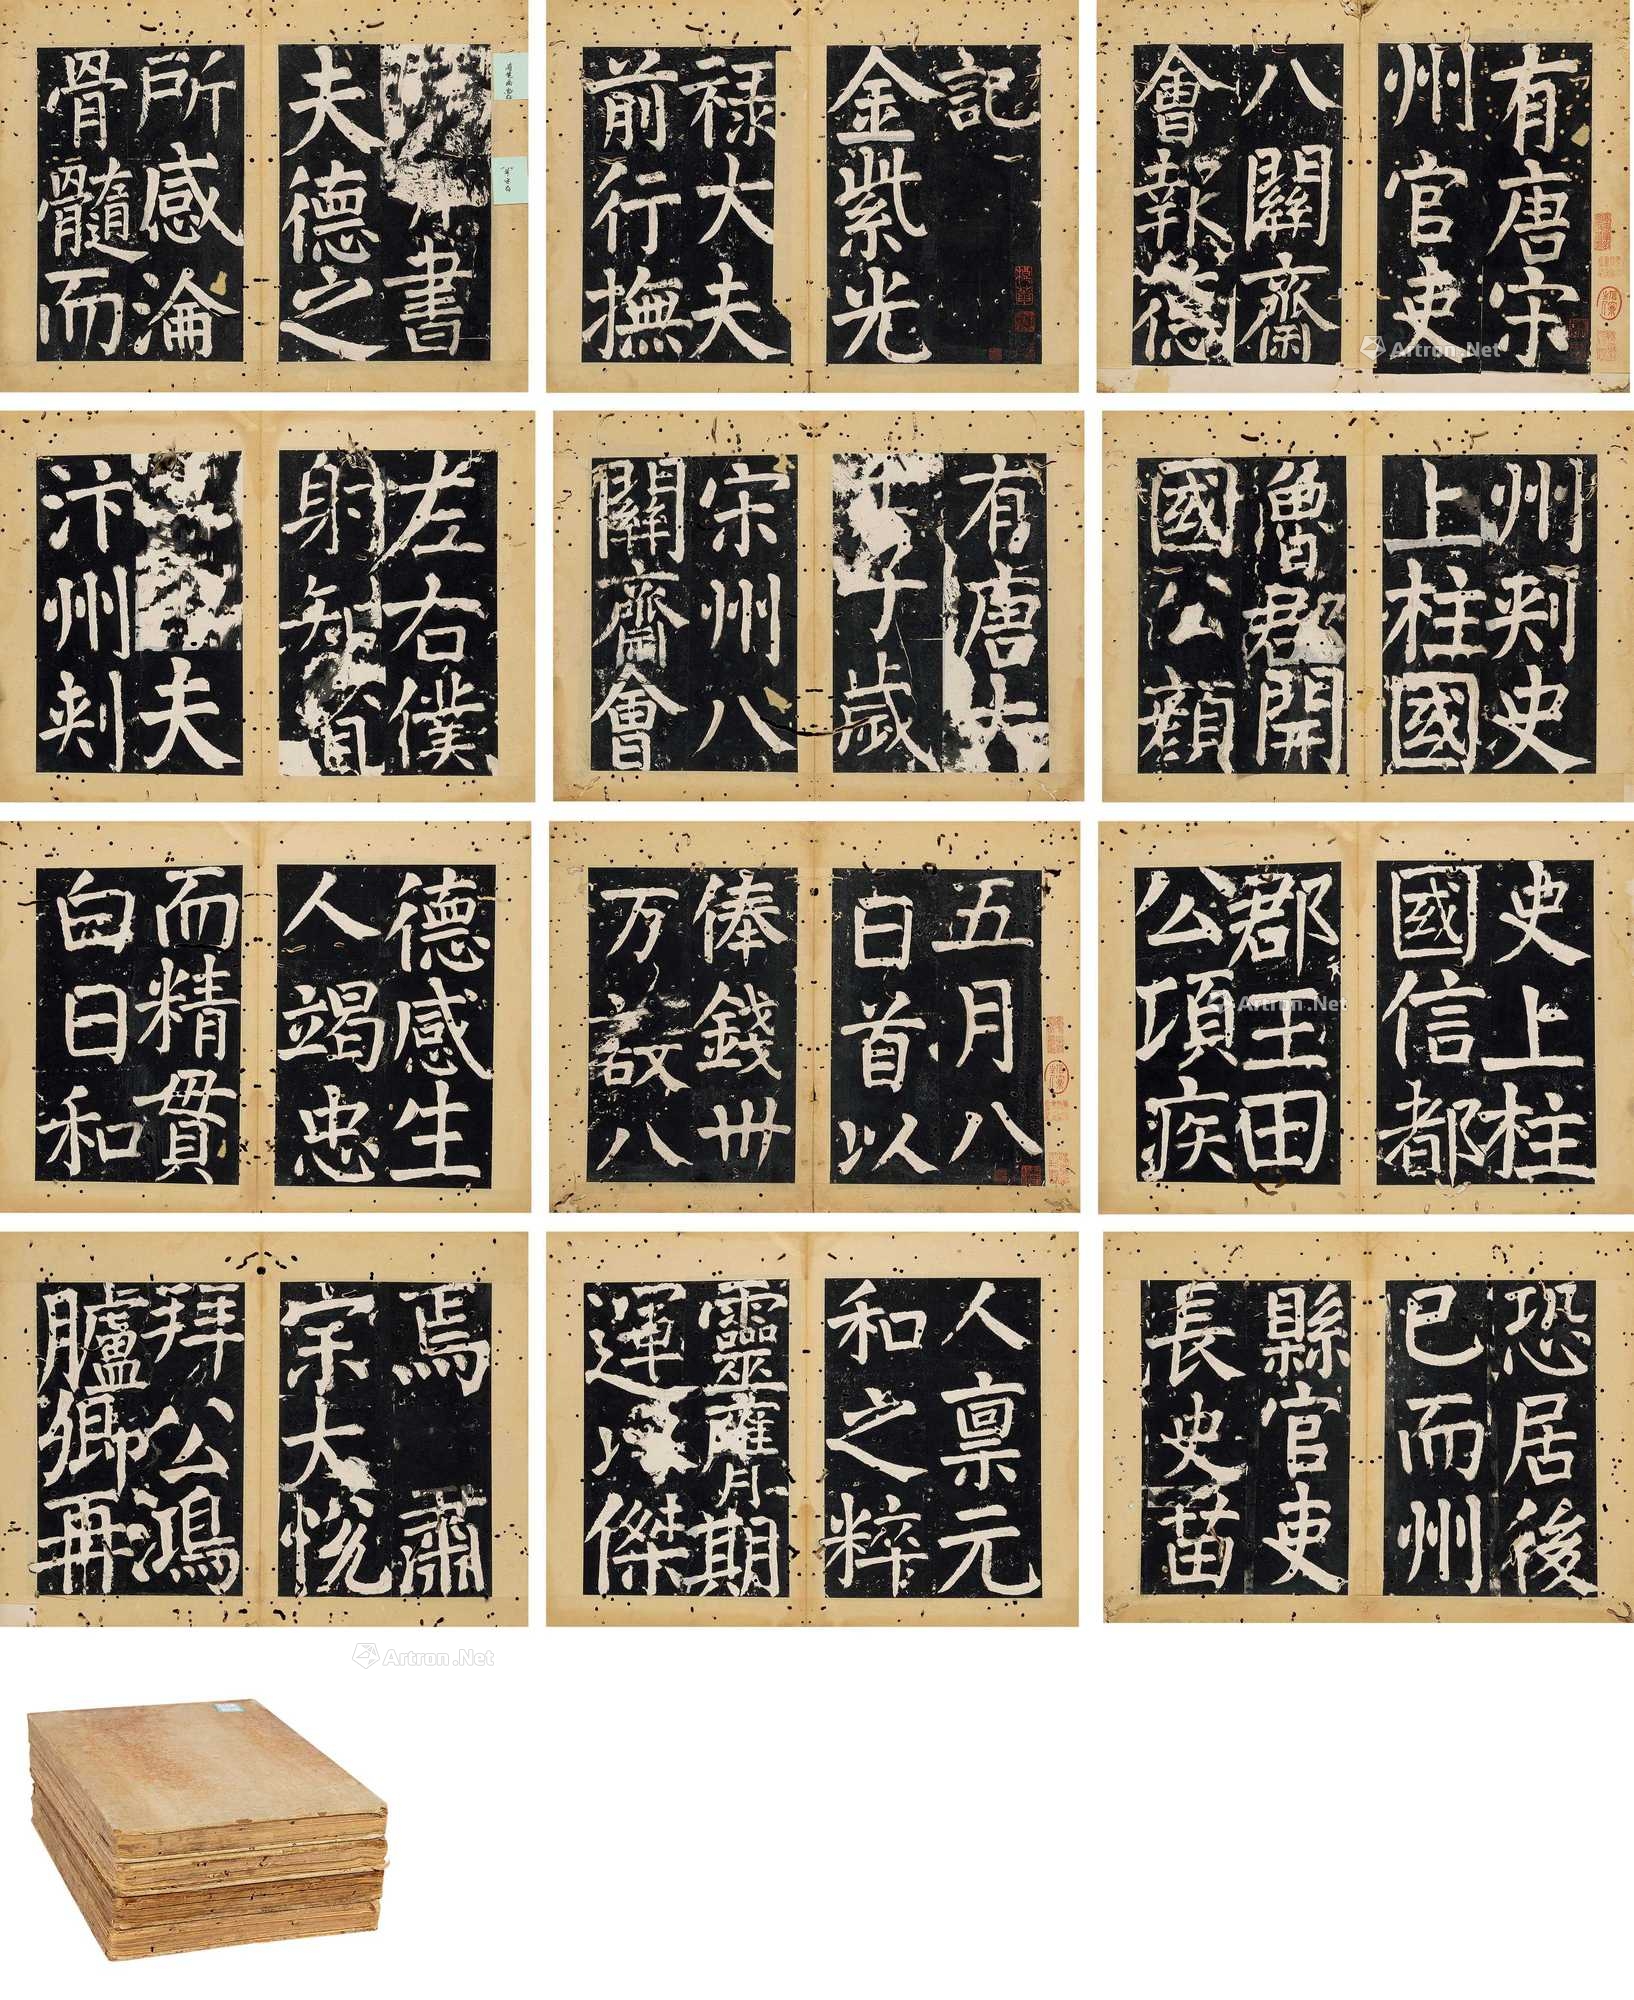 有唐宋
州官吏
八關齋
會報德
記
金紫光
禄大夫
前行撫
書
夫德之
所感淪
骨髓而
州刺史
上柱國
魯郡開
國公顏
有唐大
子歲
宋州八
關齋會
左右僕
射知省
夫
汴州刺
史上柱
國信都
郡王田
公頃疾
五月八
日首以
俸錢卅
万設八
德感生
人竭忠
而精貫
白日和
恐居後
已而州
縣官吏
長史苗
人禀元
和之粹
靈膺期
運傑
焉肅
宗大悦
拜公鴻
臚卿再
Artron.Net
Artron.Net
Artron.Net